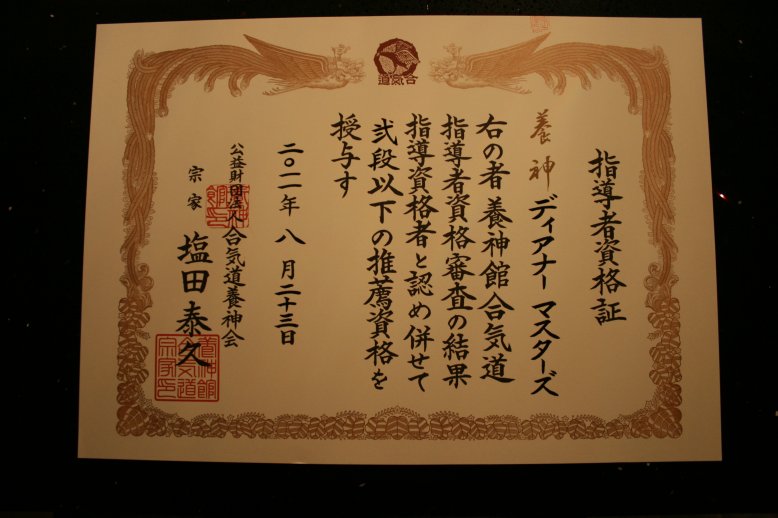 合氣道
指導者資格証
養神 ディアナー マスターズ
右の者養神館合気道
指導者資格審査の結果
指導資格者と認め併せて
弐段以下の推薦資格を
授与す
二〇一一年八月二十三日
公益財団法人合気道養神会
宗家 塩田泰久